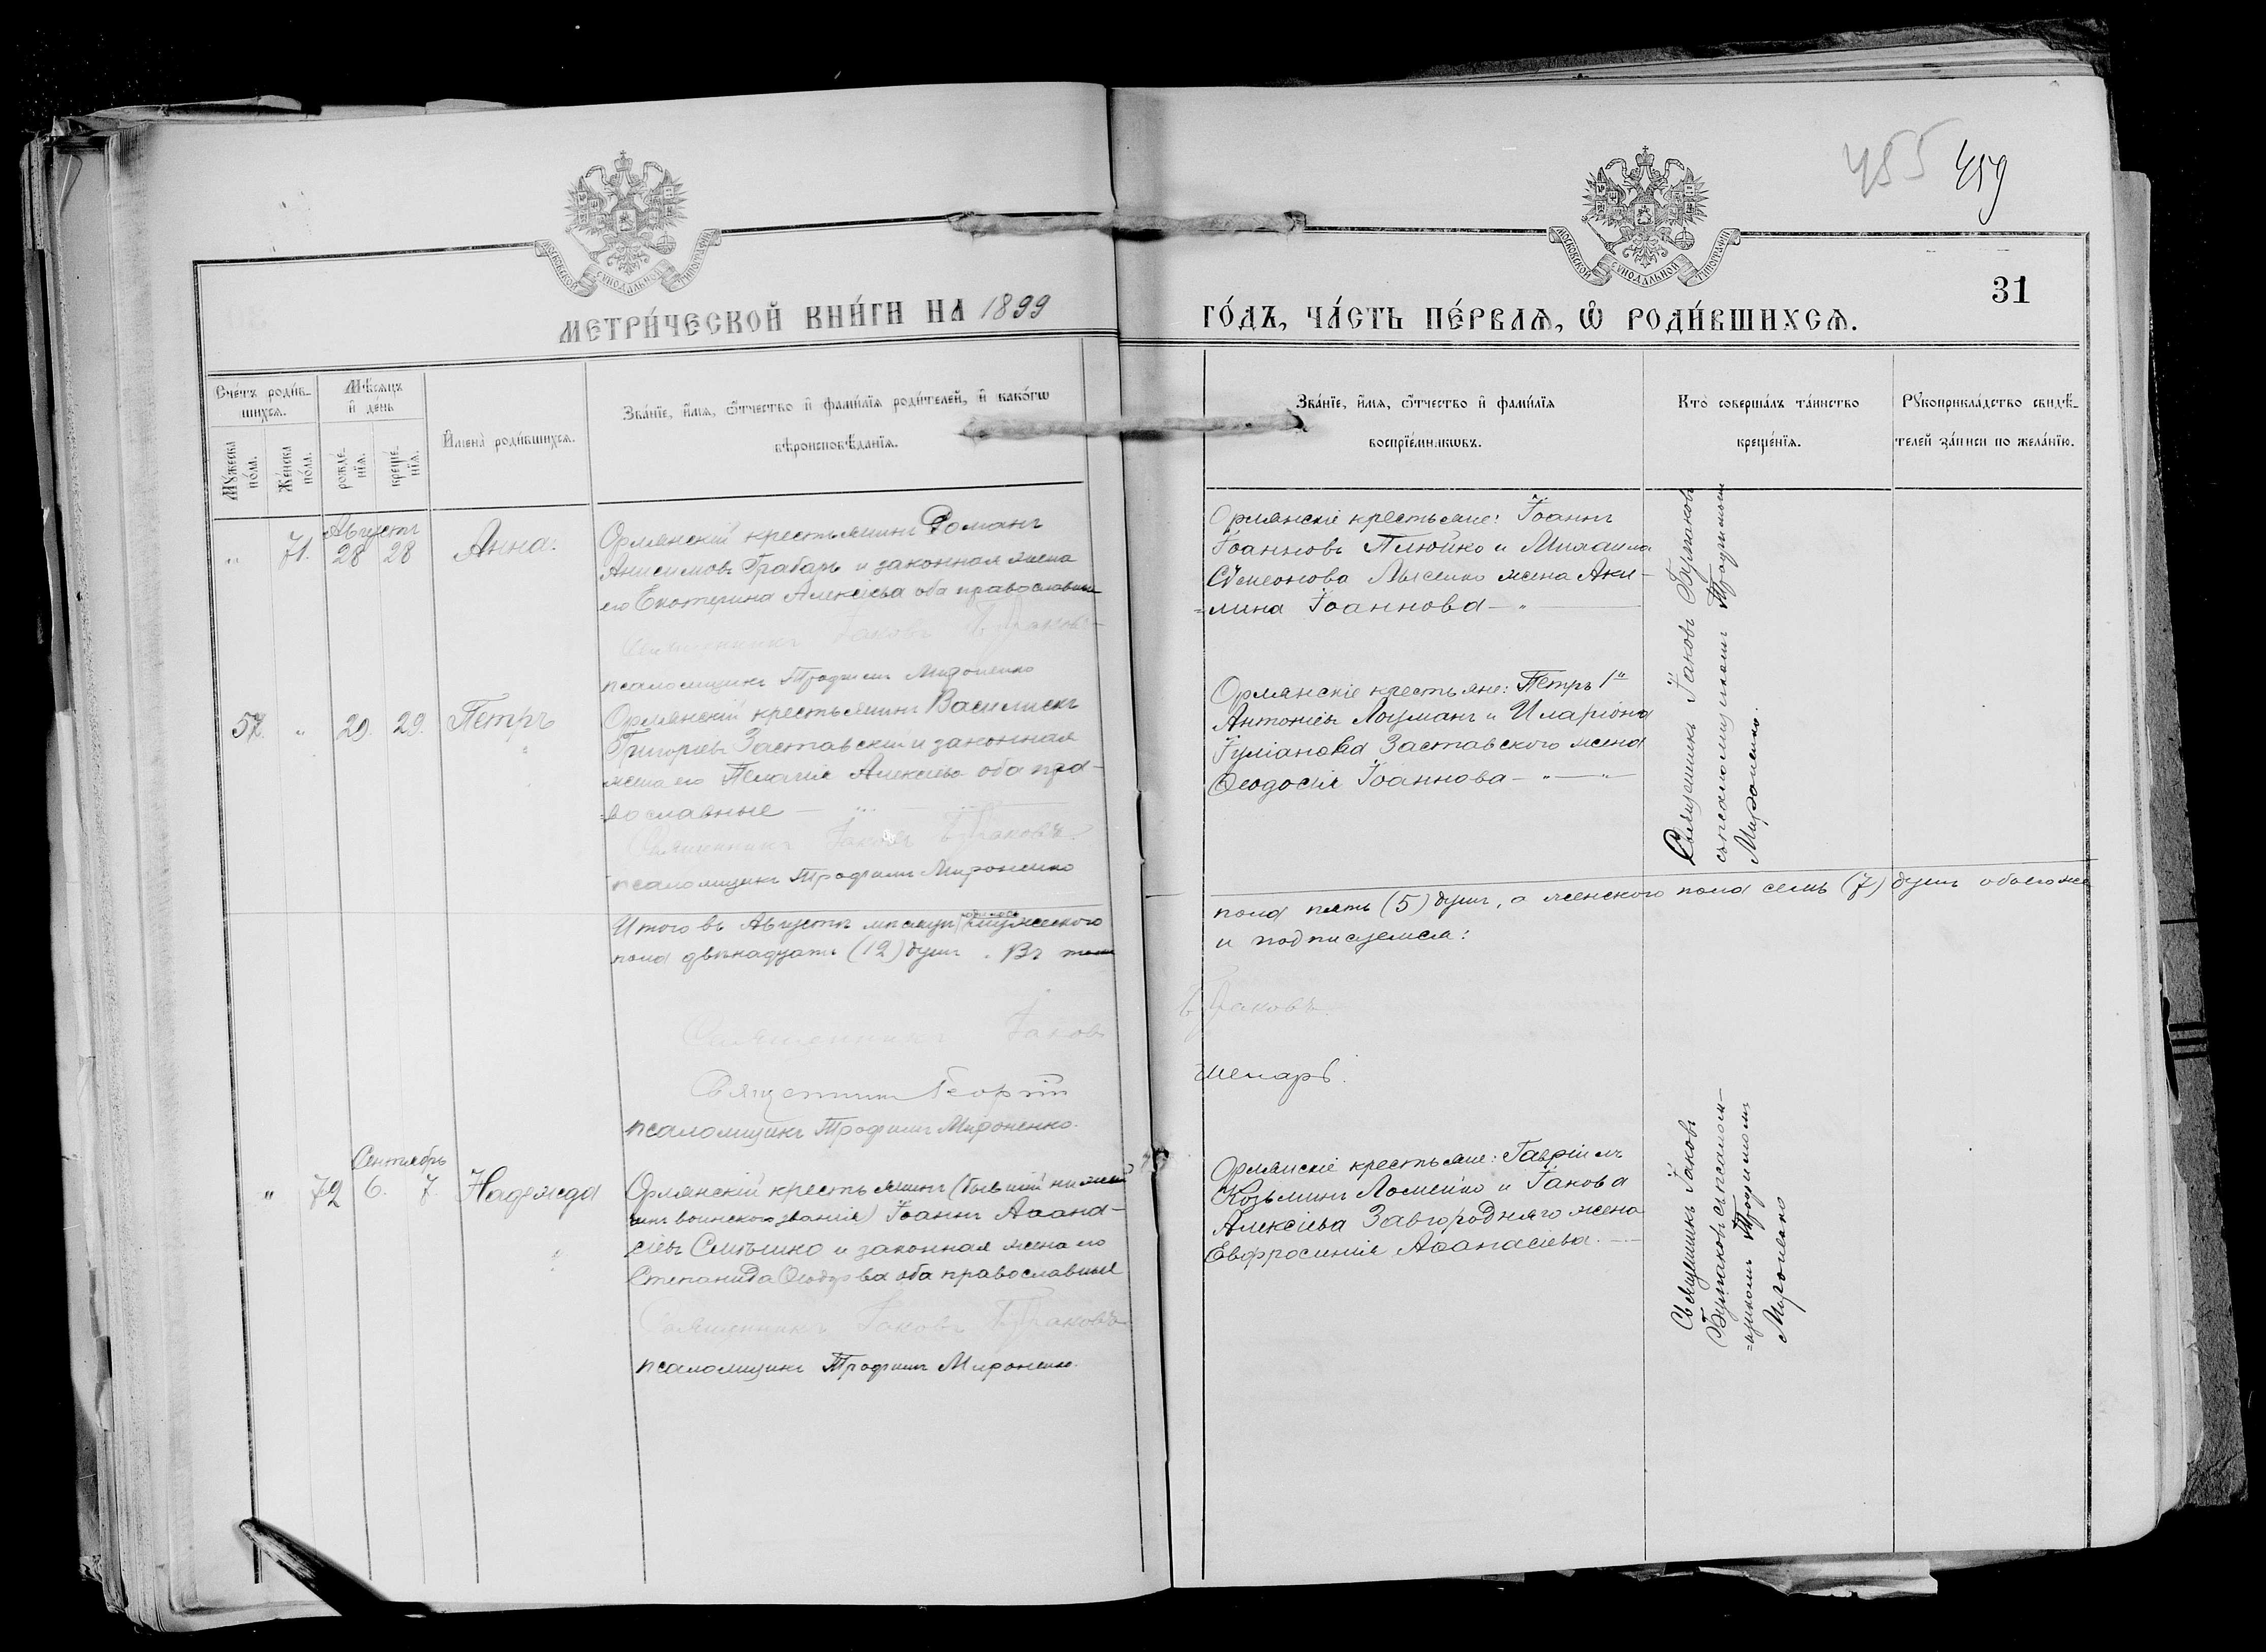 455 459
МОСКОВСКОЙ СѴНОДАЛЬНОЙ ТИПОГРАФІИ
МОСКОВСКОЙ СѴНОДАЛЬНОЙ ТИПОГРАФІИ
31
МЕТРИ́ЧЕСКОЙ КНИ́ГИ НА 1899
ГО́ДЪ, ЧА́СТЬ ПЕ́РВАЯ, Ѡ РОДИ́ВШИХСЯ.
Сче́тъ роди́в-
шихся.
Мꙋжеска по́ла.
Же́нска по́ла.
Мѣ́сяцъ
и де́нь
рожде́-
нїя.
креще́-
нїя.
Имена̀ роди́вшихся.
Зва́нїе, и́мя, о́тчество и фами́лїя роди́телей, и како́гѡ
вѣроисповѣ́данїя.
Зва́нїе, и́мя, о́тчество и фами́лїя
воспрїе́мникѡвъ.
Кто̀ соверша́лъ та́инство
креще́нїя.
Рꙋкоприкла́дство свидѣ́-
телей за́писи по жела́нїю.
Августъ
" 71. 28 28 Анна.
Орлянскій крестьянинъ Романъ
Анисимовъ Грабарь и законная жена
его Екатерина Алексіева оба православные
Священникъ Іаковъ
псаломщикъ Трофимъ Мироненко
Орлянскіе крестьяне: Іоаннъ
Іоанновъ Плюйко и Михаила
Сѵмеонова Лысенко жена Аки-
=лина Іоаннова — " —
Священникъ Іаковъ
съ псаломщикомъ Трофимомъ
Мироненко.
57. " 29. 29. Петръ
Орлянскій крестьянинъ Василискъ
Григоріевъ Заставскій и законная
жена его Пелагія Алексіева оба пра-
=вославные — " —
Священникъ Іаковъ
псаломщикъ Трофимъ Мироненко
Орлянскіе крестьяне: Петръ 1й
Антоніевъ Лоцманъ и Иларіона
Іуліанова Заставского жена
Ѳеодосія Іоаннова — " — "
Итого въ Августѣ мѣсяцѣ мужеского
пола двѣнадцать (12) душъ. Въ томъ
пола пять (5) душъ, а женского пола семь (7) душъ обоего же
и подписуемся:
Священникъ Іаковъ
Священникъ Георгій
псаломщикъ Трофимъ Мироненко.
Сентябрь
" 72 6. 7. Надежда
Орлянскій крестьянинъ (бывшій нижній
чинъ воинского званія) Іоаннъ Аѳана-
сіевъ и законная жена его
Степанида Ѳеодорова оба православные
Священникъ Іаковъ
псаломщикъ Трофимъ Мироненко.
Орлянскіе крестьяне: Гавріилъ
Козьминъ Ломейко и Іакова
Алексіева Завгородняго жена
Евфросинія Аѳанасіева. —
Священникъ Іаковъ
съ псалом-
=щикомъ Трофимомъ
Мироненко